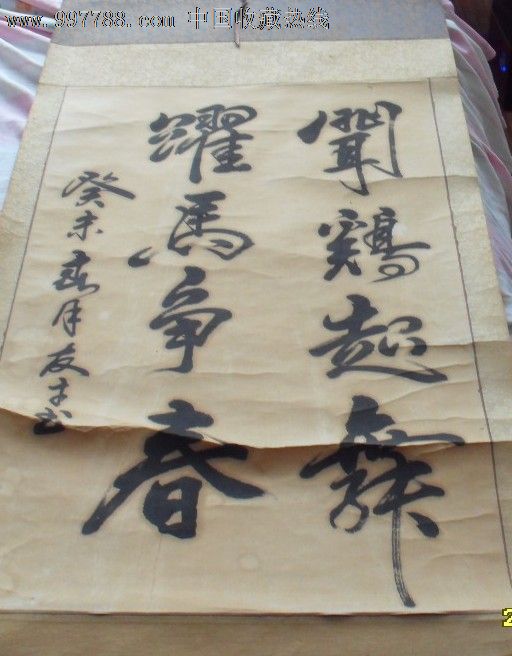 www.997788.com 中国收藏热线
聞鷄起舞
躍馬争春
癸未春月友才书
2